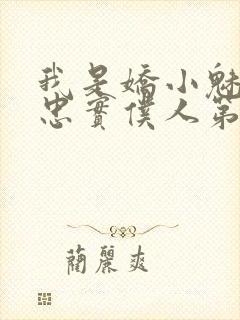 我是嬌小魅
忠實僕人第
蘭麗爽